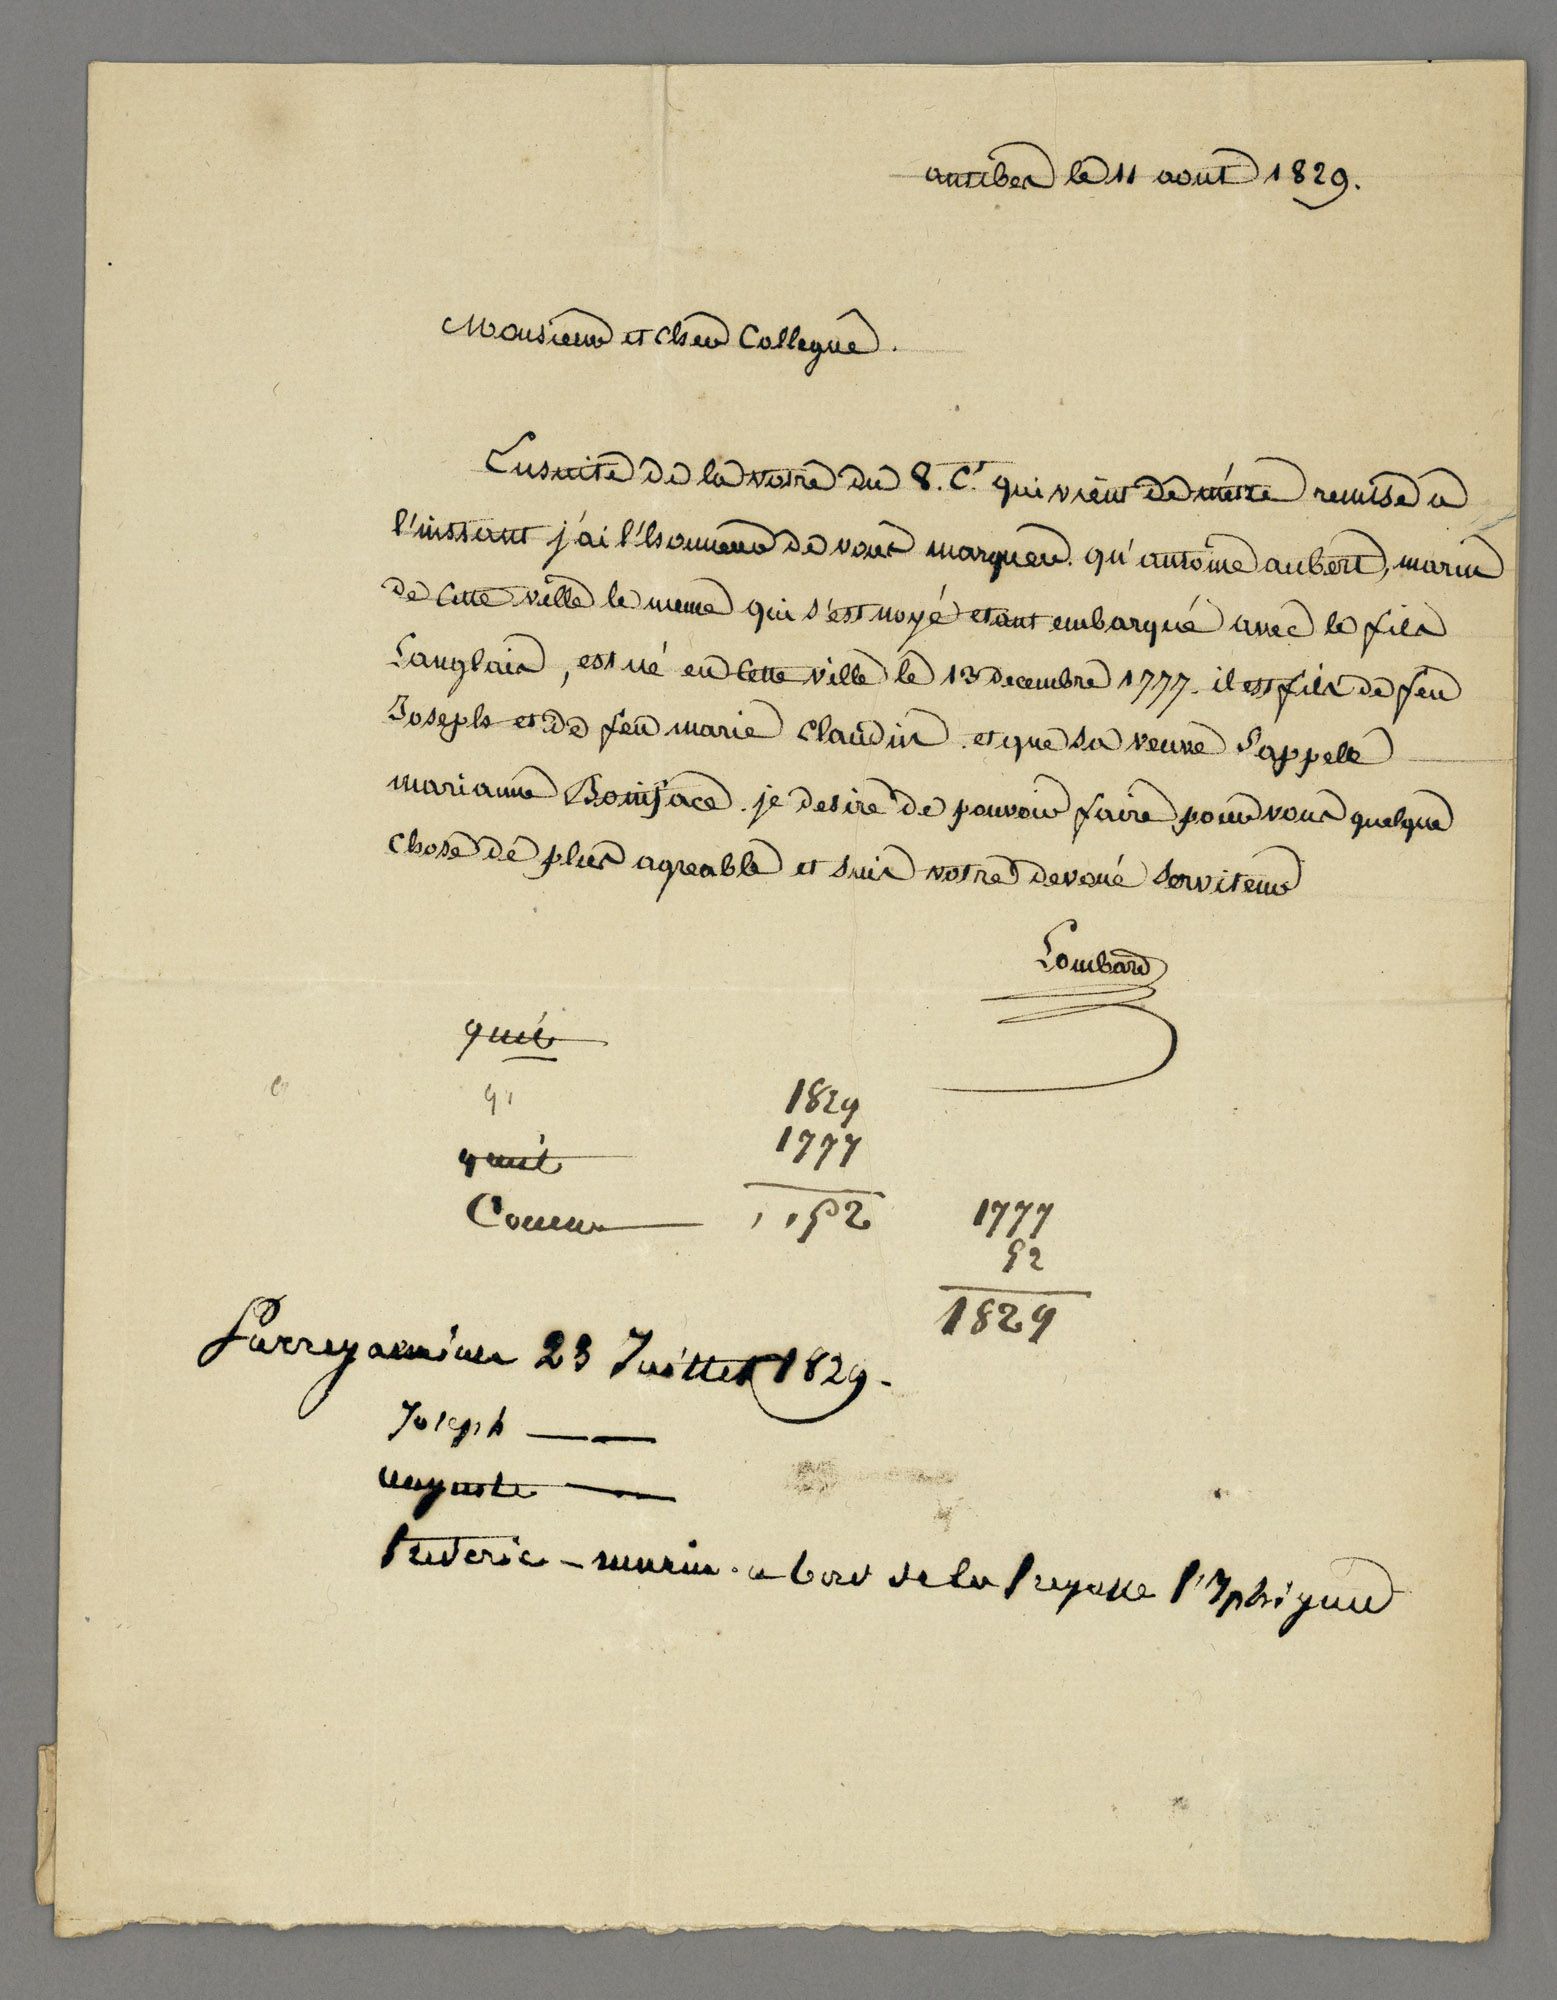 antibes le 11 aout 1829.
Monsieur et cher Collegue.
Ensuite de la votre du 8. C.t qui vient de m'étre remise a
l'instant j'ai l'honneur de vous marquer qu'antoine aubert, marin
de cette ville le meme qui s'est noyé etant embarqué avec le fils
Langlais, est né en cette ville le 13 decembre 1777. il est fils de feu
Joseph et de feu marie Claudin et que sa veuve s'appelle
marianne Boniface. je desire de pouvoir faire pour vous quelque
chose de plus agreable et suis votre devoué serviteur
Lombard
1829
1777
52
1777
52
1829
23 Juillet 1829.
Joseph
auguste
frederic - marin a bord de la fregatte l'Iphigenie